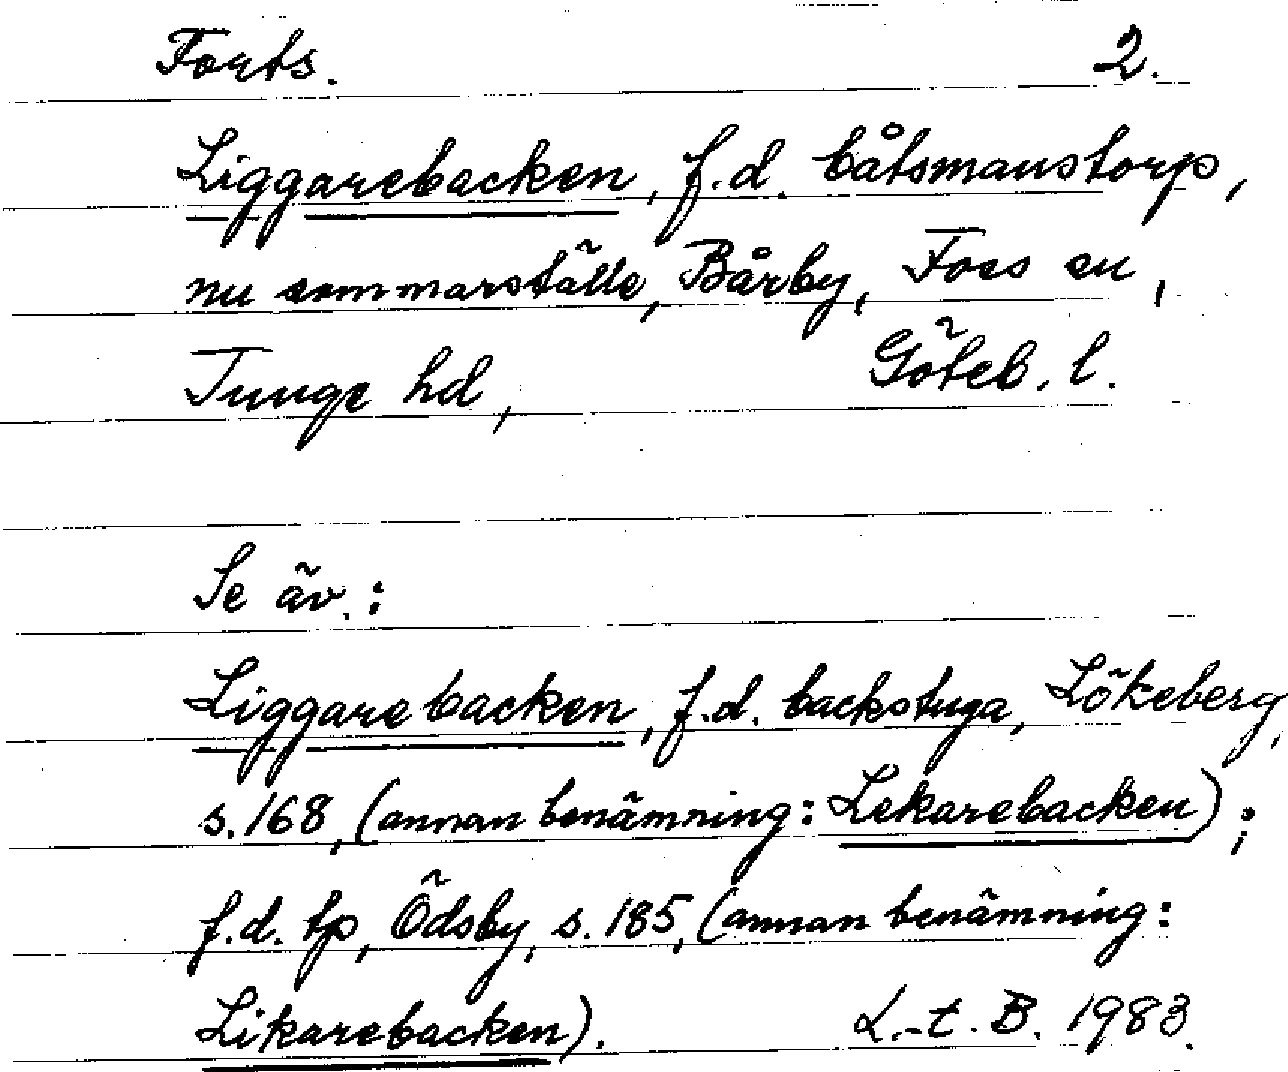 Forts. 2.
Liggarebacken, f.d. båtsmanstorp,
nu sommarställe, Bärby, Foss sn,
Tunge hd, Göteb. l.
Se äv.:
Liggarebacken, f.d. backstuga, Lökeberg,
s. 168, (annan benämning: Lekarebacken);
f.d. tp, Ödsby, s. 185, (annan benämning:
Likarebacken). L.-t. B. 1983.